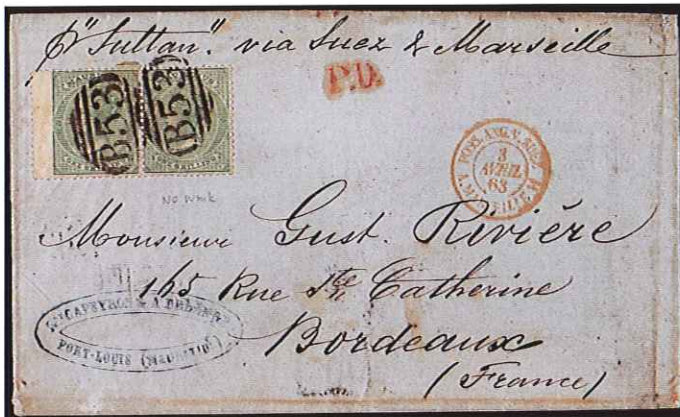 p "Sultan". via Suez & Marseille
P.D.
B53 B53
POSS. ANG. V. SUEZ
3
AVRIL
63
A MARSEILLE H
No wmk
Monsieur Gust. Rivière
165 Rue Ste Catherine
Bordeaux
(France)
PORT-LOUIS